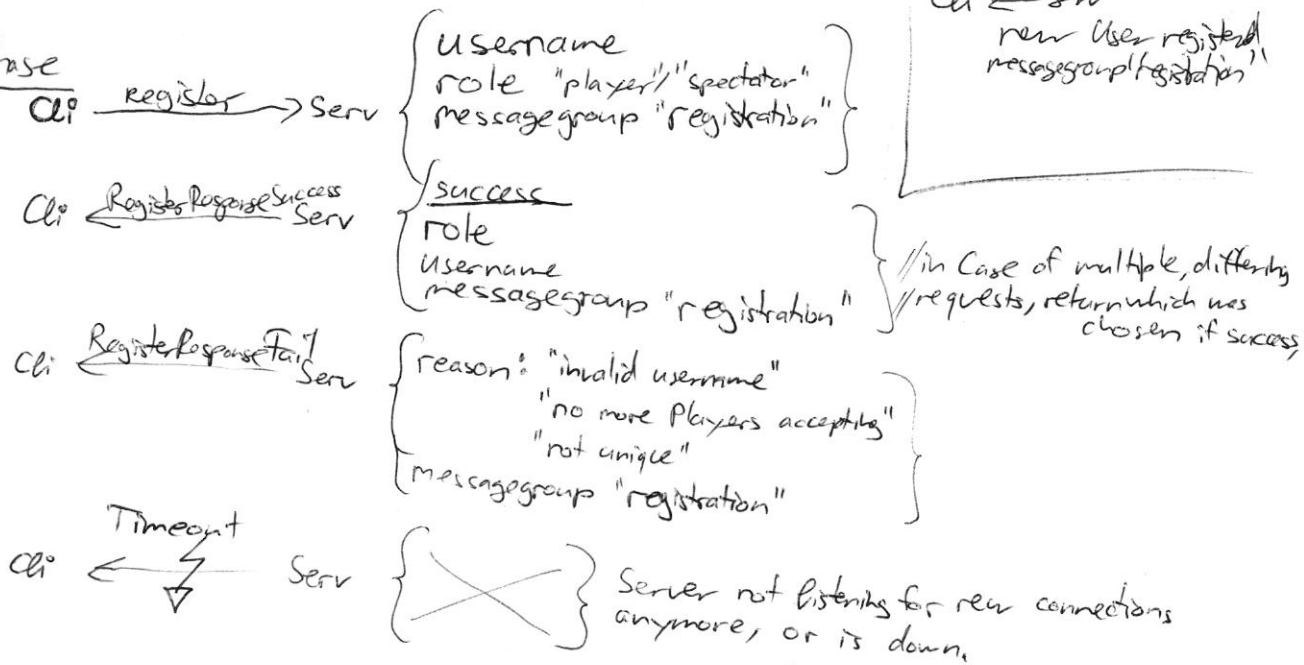 ase
Cli Register Serv
username
role "player"/"spectator"
messagegroup "registration"
Cli Serv
new User registered
messagegroup "registration"
Cli RegisterResponseSuccess Serv
success
role
username
messagegroup "registration"
//in Case of multiple, differing
//requests, return which was
chosen if success,
Cli RegisterResponseFail Serv
reason: "invalid username"
"no more Players accepting"
"not unique"
messagegroup "registration"
Timeout
Cli Serv
Server not listening for new connections
anymore, or is down.